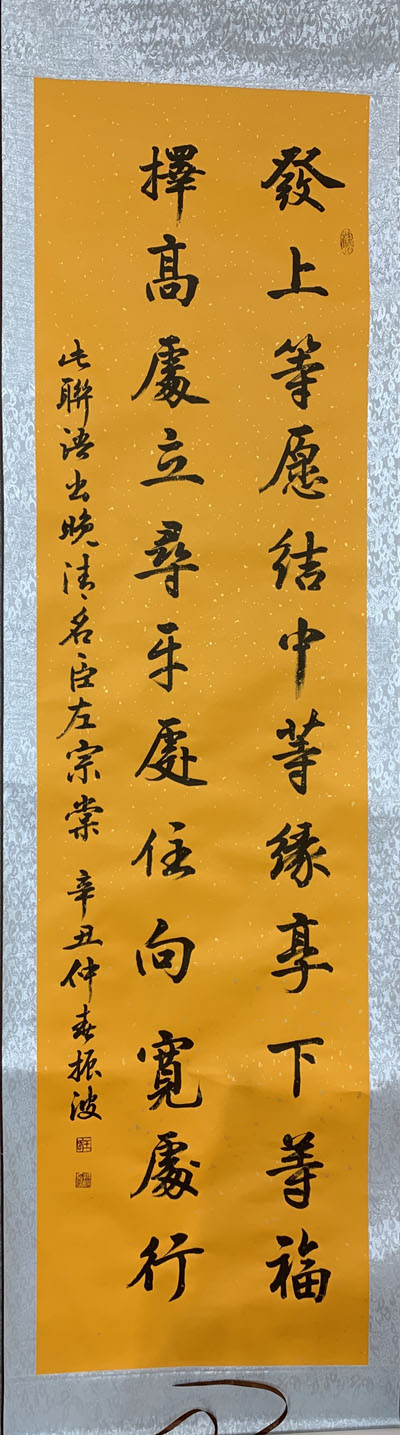 發上等愿结中等缘享下等福
擇高處立尋平處住向寬處行
此聯语出晚清名臣左宗棠 辛丑仲春振波